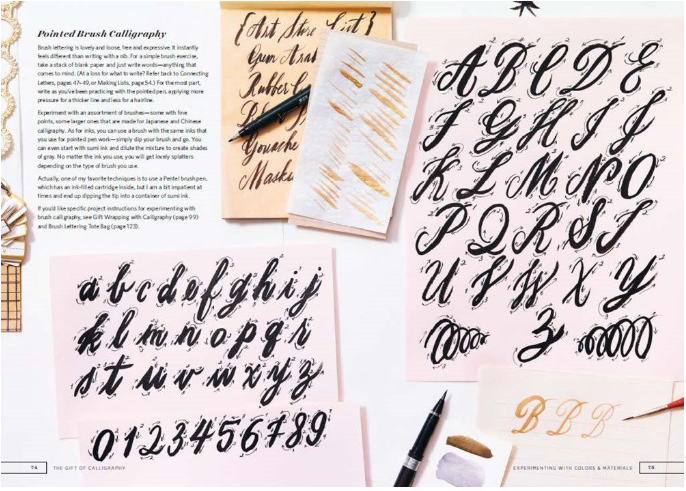 Pointed Brush Calligraphy
Brush lettering is lovely and loose, free and expressive. It instantly
feels different than writing with a nib. For a simple brush exercise,
take a stack of blank paper and just write words—anything that
comes to mind. (At a loss for what to write? Refer back to Connecting
Letters, pages 47–49, or Making Lists, page 54.) For the most part,
write as you've been practicing with the pointed pen, applying more
pressure for a thicker line and less for a hairline.
Experiment with an assortment of brushes—some with fine
points, some larger ones that are made for Japanese and Chinese
calligraphy. As for inks, you can use a brush with the same inks that
you use for pointed pen work—simply dip your brush and go. You
can even start with sumi ink and dilute the mixture to create shades
of gray. No matter the ink you use, you will get lovely splatters
depending on the type of brush you use.
Actually, one of my favorite techniques is to use a Pentel brush pen,
which has an ink-filled cartridge inside, but I am a bit impatient at
times and end up dipping the tip into a container of sumi ink.
If you'd like specific project instructions for experimenting with
brush calligraphy, see Gift Wrapping with Calligraphy (page 99)
and Brush Lettering Tote Bag (page 123).
{Art Store List}
Rubber
Gouache
A B C D E
F G H I J
K L M N O
P Q R S T
U V W X Y
Z
a b c d e f g h i j
k l m n o p q r
s t u v w x y z
0 1 2 3 4 5 6 7 8 9
B B B
74 THE GIFT OF CALLIGRAPHY
EXPERIMENTING WITH COLORS & MATERIALS 75